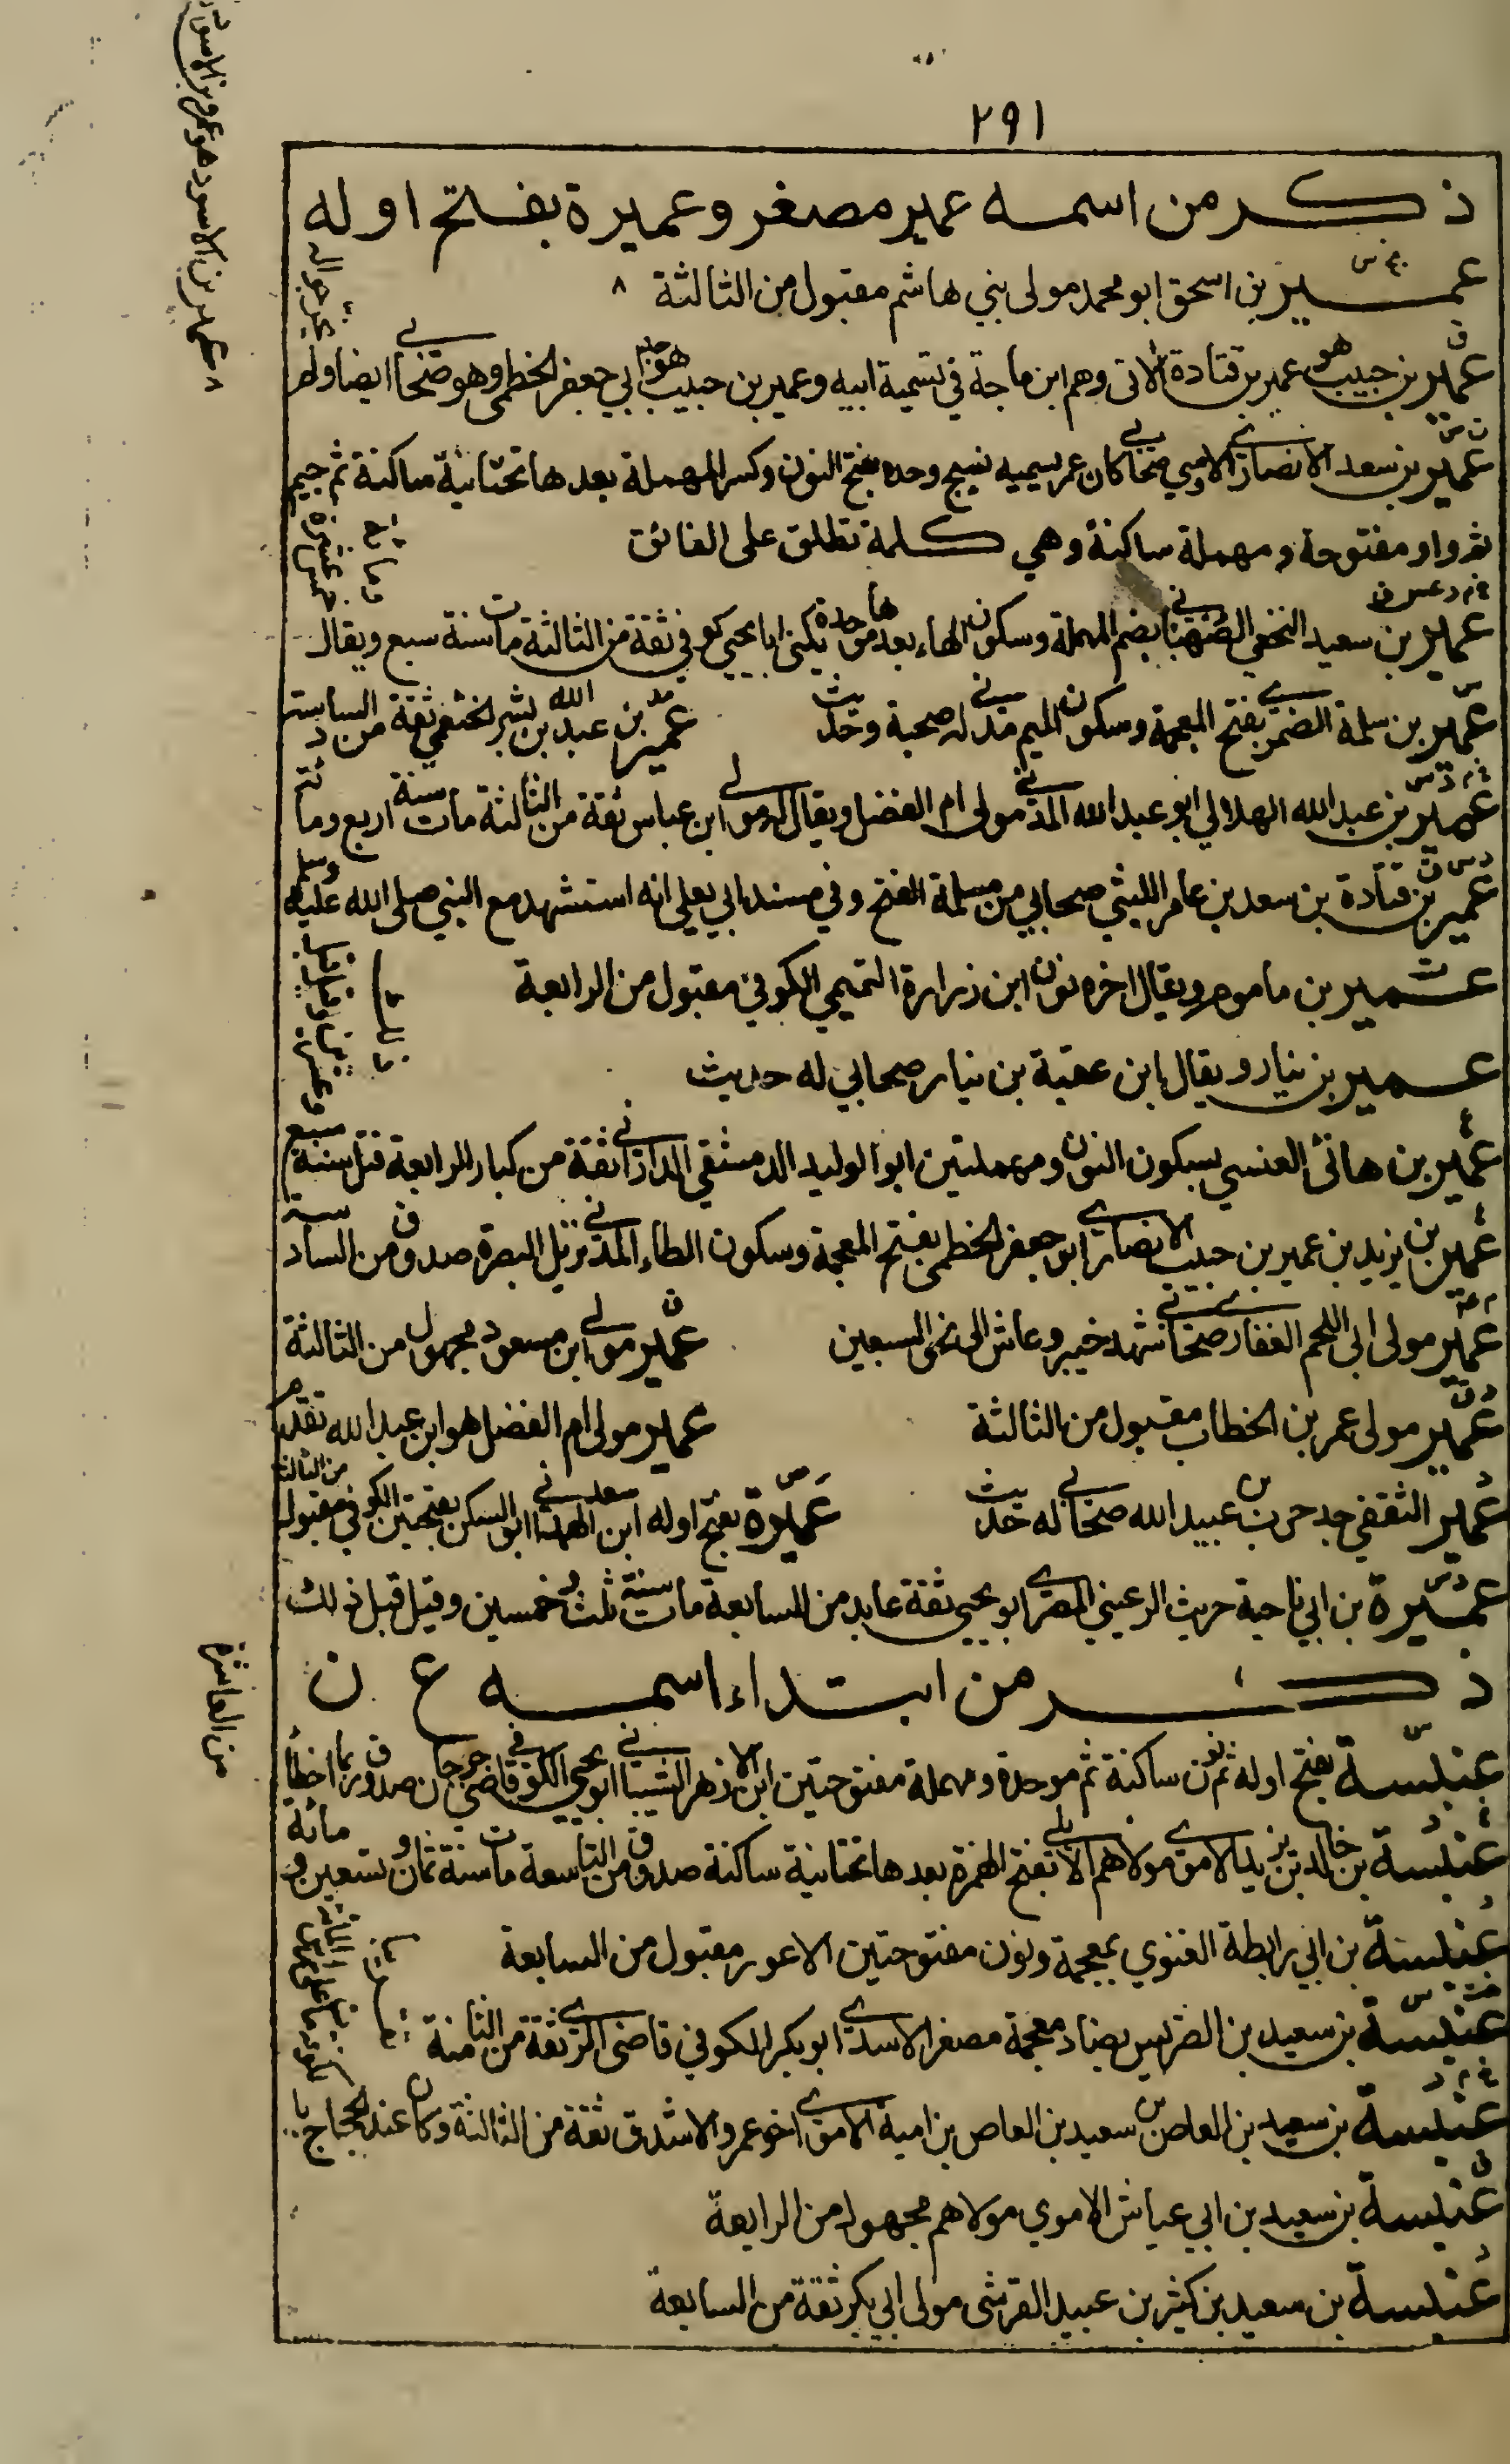 ٢٩١
ذكر من اسمه عمير مصغر وعميرة بفتح اوله
عمير بن اسحق ابو محمد مولى بني هاشم مقبول من الثالثة ٨
عمير بن حبيب هو عمير بن قتادة الاتي وهم ابن ماجة في تسمية ابيه وعمير بن حبيب هو جد ابي جعفر الخطمي وهو صحابي ايضا ولم
عمير بن سعد الانصاري الاوسي صحابي كان عمر يسميه نسيج وحده بفتح النون وكسر المهملة بعدها تحتانية ساكنة ثم جيم
ثم واو مفتوحة ومهملة ساكنة وهي كلمة تطلق على الفائق
عمير بن سعيد النخعي الصهباني بضم المهملة وسكون الهاء بعدها موحدة يكنى ابا يحيى كوفي ثقة من الثالثة مات سنة سبع ويقال
خمس عشرة ومائة
عمير بن سلمة الضمري بفتح المعجمة وسكون الميم مدني له صحبة وحديث
عمير بن عبد الله بن بشر الخثعمي ثقة من السادسة
عمير بن عبد الله الهلالي ابو عبد الله المدني مولى ام الفضل ويقال له مولى ابن عباس ثقة من الثالثة مات سنة اربع ومائة
عمير بن قتادة بن سعد بن عامر الليثي صحابي من مسلمة الفتح وفي مسند ابي يعلى انه استشهد مع النبي صلى الله عليه وسلم
عمير بن ماموم ويقال اخره نون ابن زرارة التميمي الكوفي مقبول من الرابعة
عمير بن نيار ويقال ابن عقبة بن نيار صحابي له حديث
عمير بن هانئ العنسي بسكون النون ومهملتين ابو الوليد الدمشقي الداراني ثقة من كبار الرابعة قتل سنة سبع
وعشرين وقيل قبل ذلك
عمير بن يزيد بن عمير بن حبيب الانصاري ابو جعفر الخطمي بفتح المعجمة وسكون الطاء المدني نزيل البصرة صدوق من السادسة
عمير مولى ابي اللحم الغفاري صحابي شهد خيبر وعاش الى نحو السبعين
عمير مولى ابن مسعود مجهول من الثالثة
عمير مولى عمر بن الخطاب مقبول من الثالثة
عمير مولى ام الفضل هو ابن عبد الله تقدم
عمير الثقفي جد حرب بن عبيد الله صحابي له حديث
عميرة بفتح اوله ابن سعد الهمداني ابو السكن بفتحتين الكوفي مقبول من الثالثة
عميرة بن ابي ناجية حريث الرعيني المصري ابو يحيى ثقة عابد من السابعة مات سنة ثلث وخمسين وقيل قبل ذلك
ذكر من ابتداء اسمه ع ن
عنبسة بفتح اوله ثم نون ساكنة ثم موحدة ومهملة مفتوحتين ابن الازهر الشيباني ابو يحيى الكوفي قاضي جرجان صدوق ربما اخطأ
عنبسة بن خالد بن يزيد الاموي مولاهم الايلي بفتح الهمزة بعدها تحتانية ساكنة صدوق من التاسعة مات سنة ثمان وتسعين ومائة
عنبسة بن ابي رابطة الغنوي بمعجمة ونون مفتوحتين الاعور مقبول من السابعة
عنبسة بن سعيد بن الضريس بضاد معجمة مصغر الاسدي ابو بكر الكوفي قاضي الري ثقة من الثامنة
عنبسة بن سعيد بن العاص بن سعيد بن العاص بن امية الاموي اخو عمرو الاشدق ثقة من الثالثة وكان عند الحجاج
عنبسة بن سعيد بن ابي عياش الاموي مولاهم مجهول من الرابعة
عنبسة بن سعيد بن كثير بن عبيد القرشي مولى ابي بكر ثقة من السابعة
عمير بن الاسود هو عمرو بن الاسود
من العاشرة